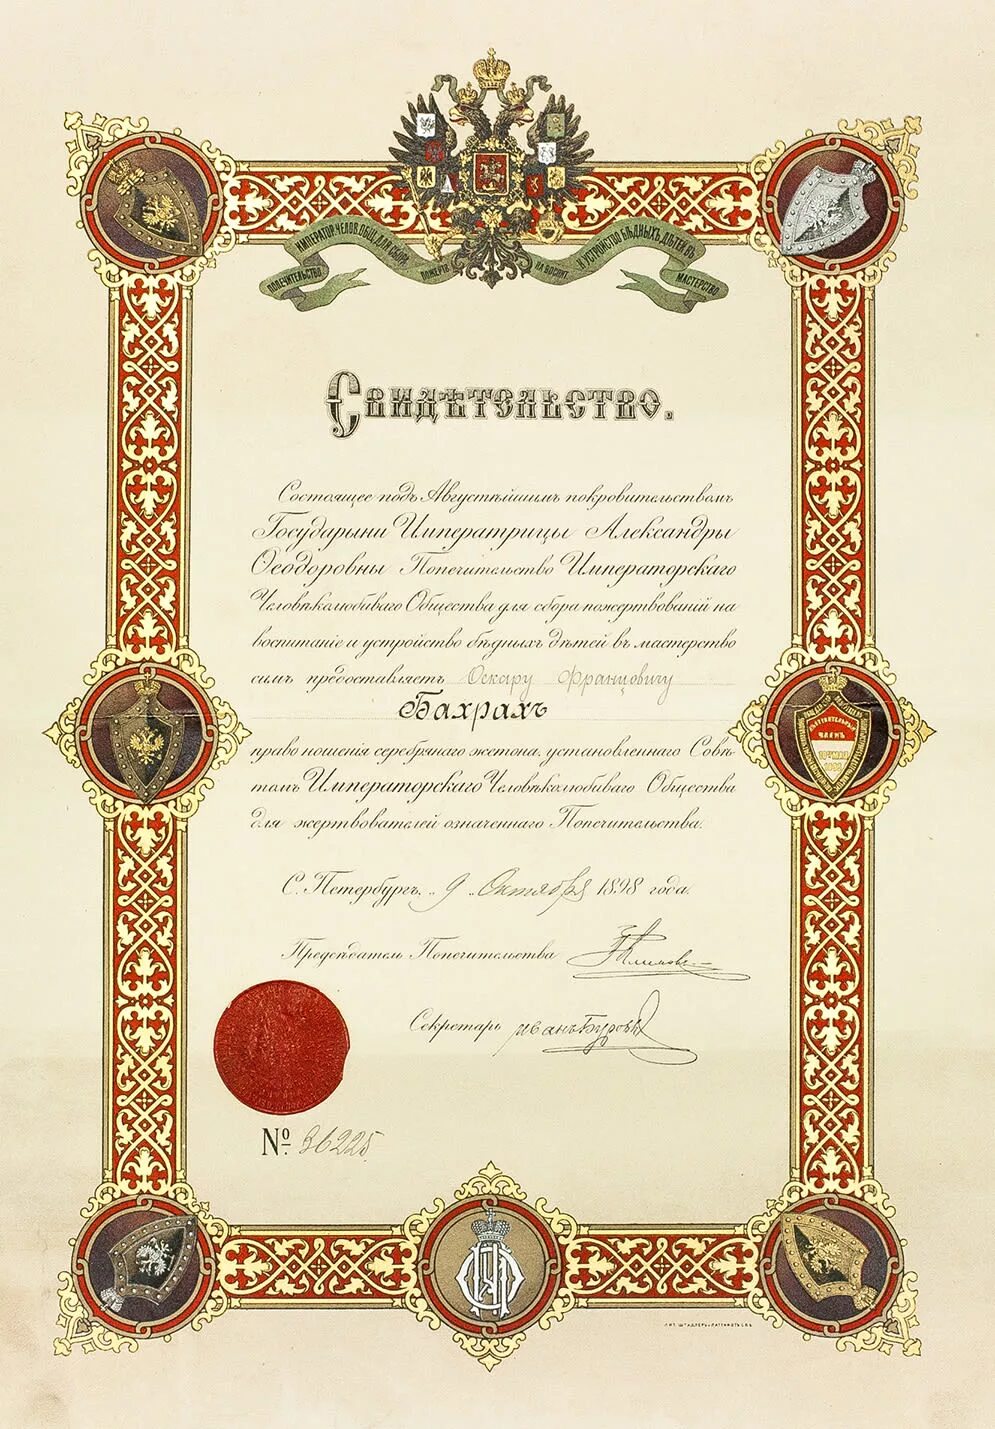 ПОПЕЧИТЕЛЬСТВО ИМПЕРАТОР. ЧЕЛОВ. ОБЩ. ДЛЯ СБОРА ПОЖЕРТВ. НА ВОСПИТ. И УСТРОЙСТВО БѢДНЫХЪ ДѢТЕЙ ВЪ МАСТЕРСТВО
Свидѣтельство.
Состоящее подъ Августѣйшимъ покровительствомъ
Государыни Императрицы Александры
Ѳеодоровны Попечительство Императорскаго
Человѣколюбиваго Общества для сбора пожертвованій на
воспитаніе и устройство бѣдныхъ дѣтей въ мастерство
симъ предоставляетъ Оскару Францовичу
Бахрахъ
право ношенія серебрянаго жетона, установленнаго Совѣ-
томъ Императорскаго Человѣколюбиваго Общества
для жертвователей означеннаго Попечительства.
ДѢЙСТВИТЕЛЬНЫЙ
ЧЛЕНЪ
С. Петербургъ. „9„ Октября 1898 года.
Предсѣдатель Попечительства
Секретарь Иванъ Буровъ
№ 36225